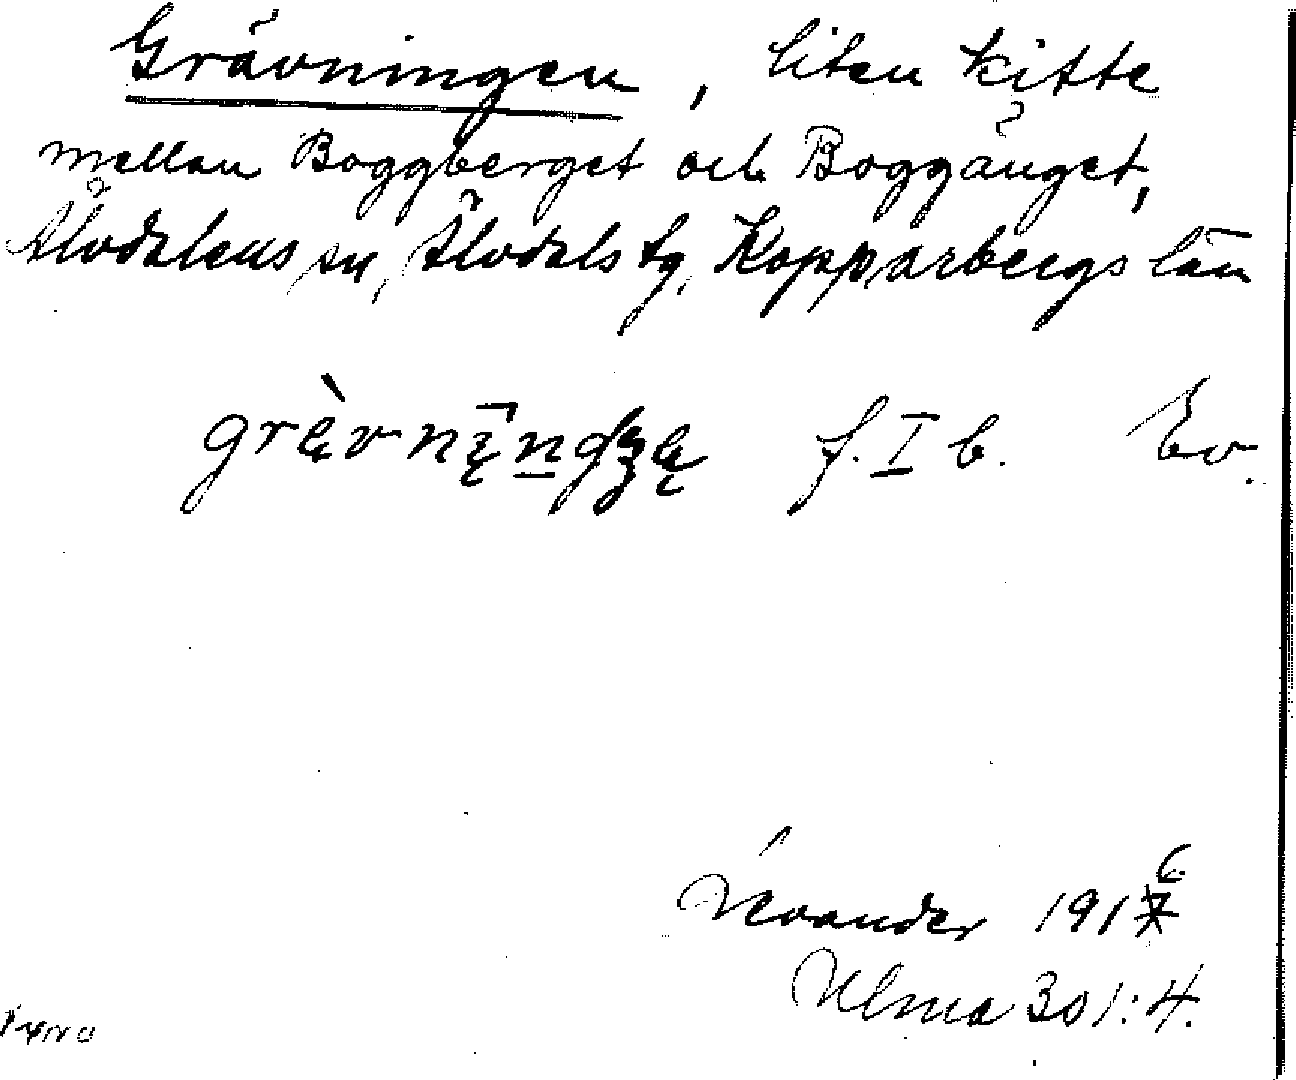 Grävningen, liten kitte
mellan Boggberget och Boggänget,
Älvdalens sn, Älvdals tg, Kopparbergs län
grèvnịngʒę f. I b. Ev.
Levander 1916
Ulma 301:4.